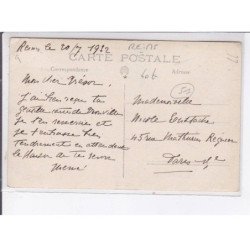 Reims le 20/7 1932
REIMS
CARTE POSTALE
Correspondance
Adresse
40f
51
Mon cher Trésor,
J'ai bien reçu ta
gentille carte de Trouville
je t'en remercie et
je t'embrasse bien
tendrement en attendant
le plaisir de te revoir
Mémé
Mademoiselle
Nicole
45 rue Mathurin Regnier
Paris